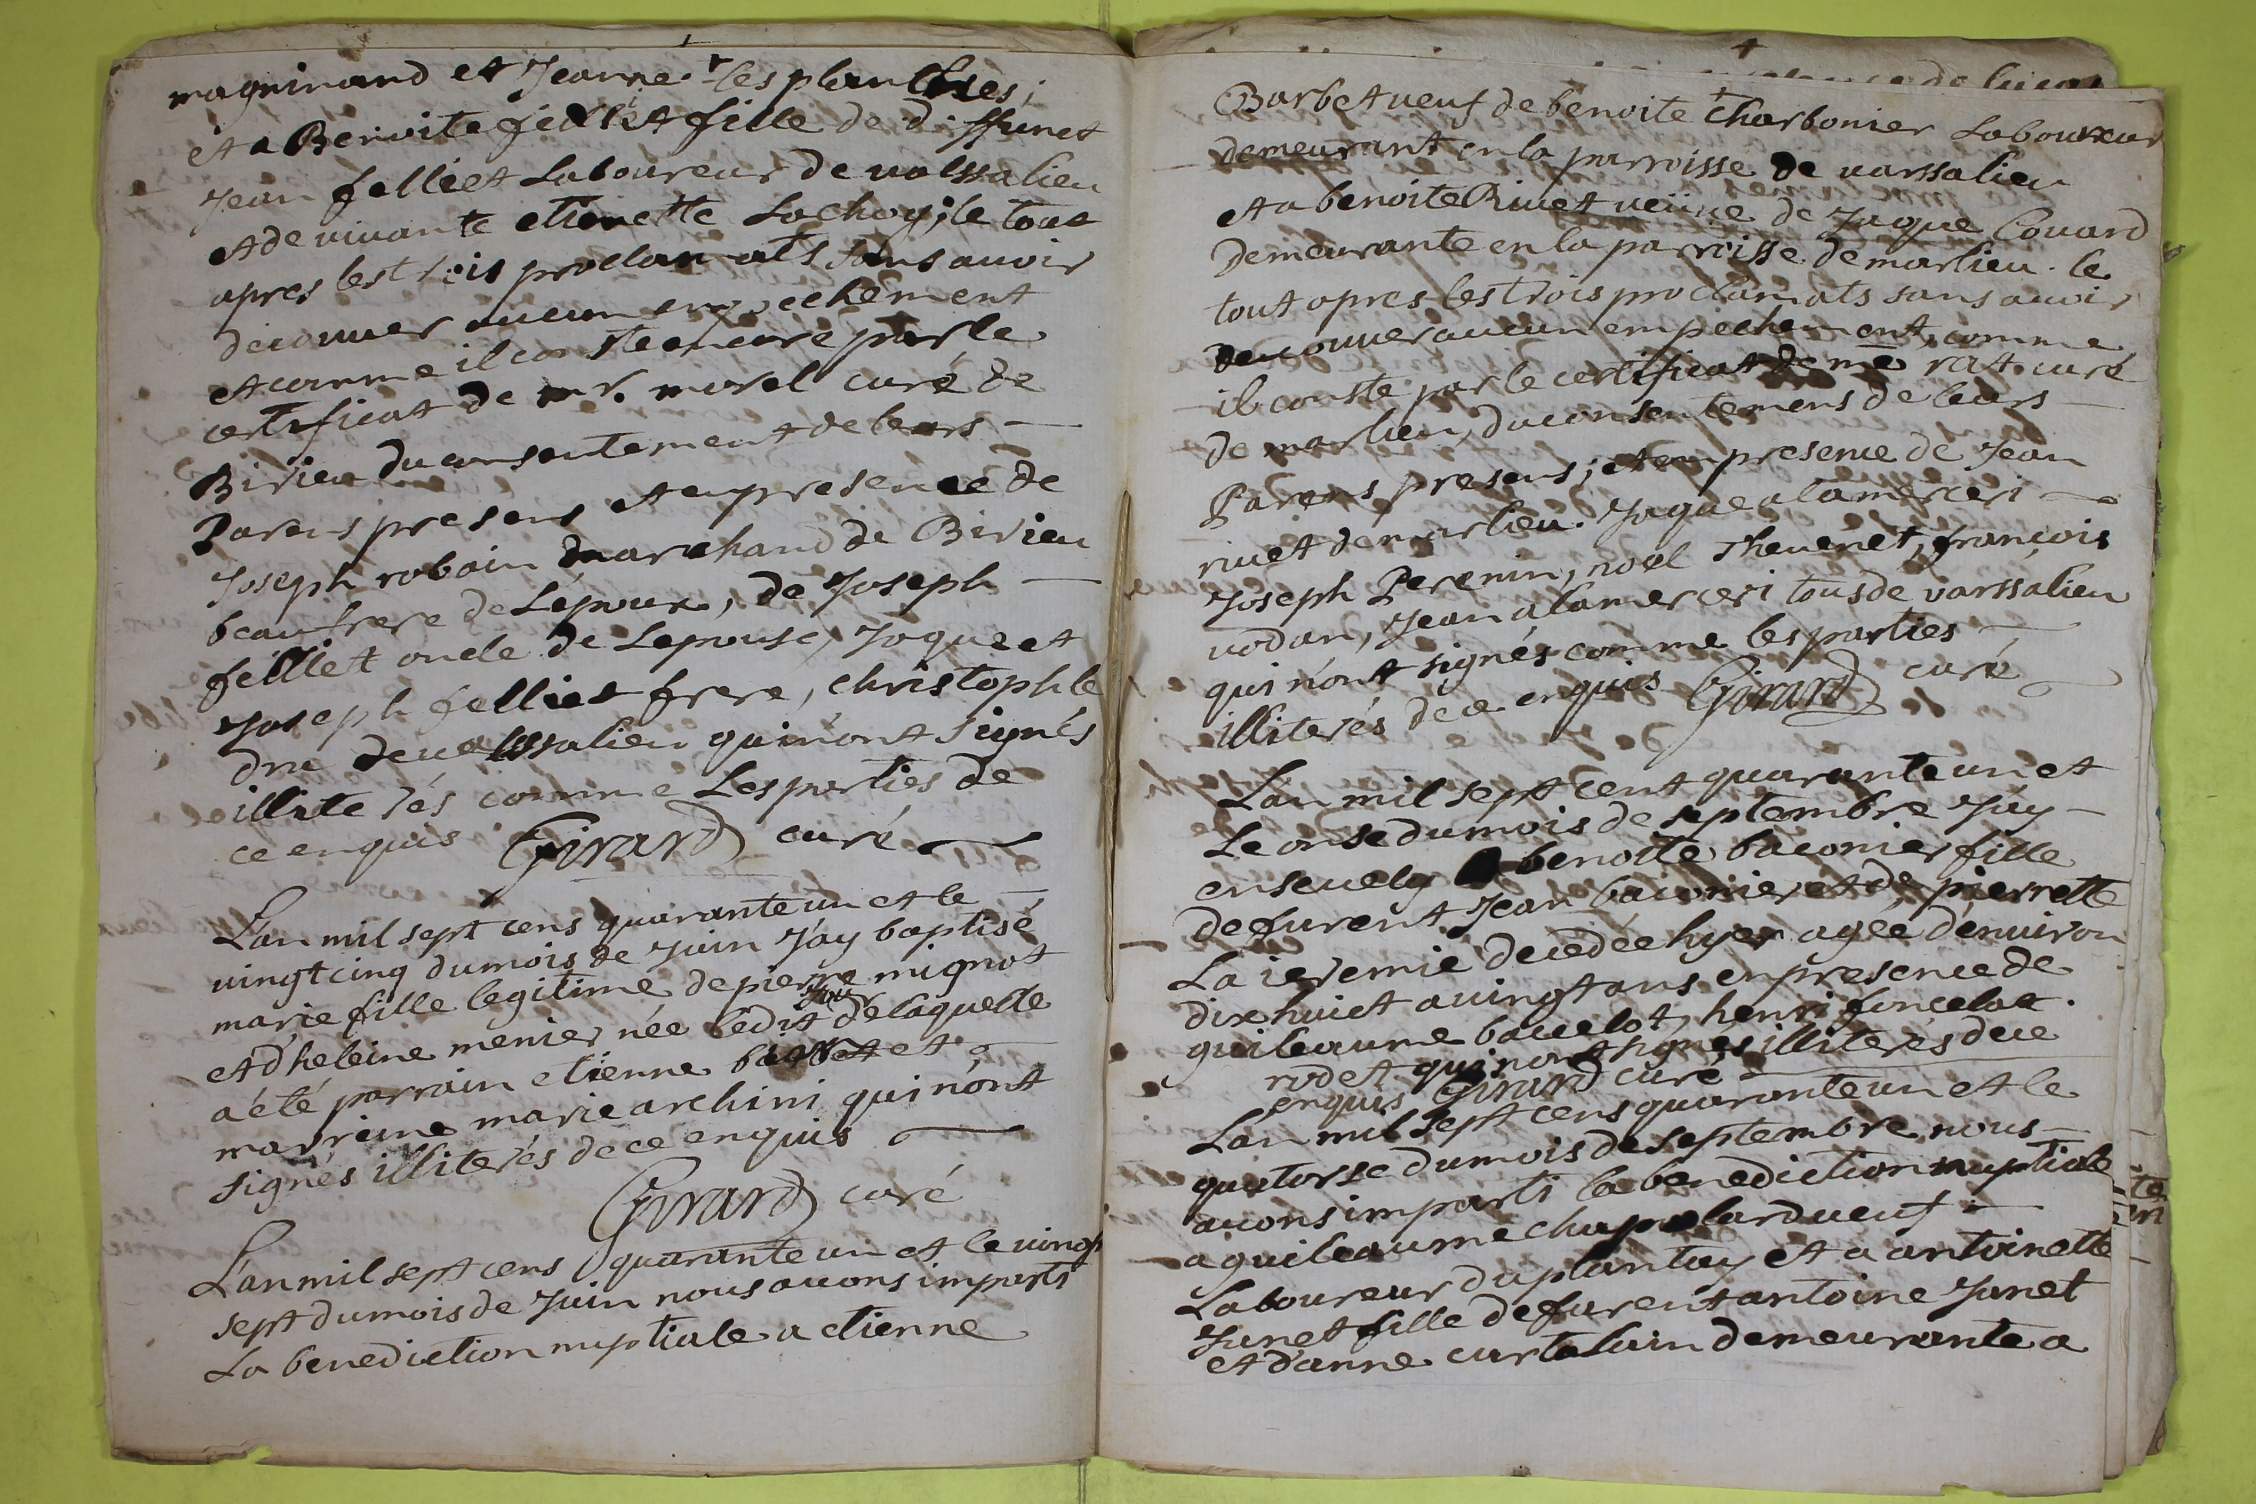 magninand et Jeanne les planches;
et a Benoite felliet fille de deffunct
Jean felliet Laboureur de valssalieu
et de vivante etienette Lachoy; le tout
apres les trois proclamats sans avoir
decouver aucun empechement
et comme il conste encore par le
certificat de mr. morel curé de
Birieu du consentement de leurs —
Parens presens et en presence de
Joseph robain marchand de Birieu
beaufrere de Lepoux, de Joseph —
felliet oncle de Lepouse, Joque et
Joseph felliet frere, christophle
dru de valssalieu qui n'ont signés
illiterés comme Les parties de
ce enquis Girard curé
L'an mil sept cens quarante un et le
vingt cinq du mois de Juin J'ay baptisé
marie fille legitime de pierre mignot
et d'heleine menier née ledit Jour de laquelle
a été parrain etienne barbet et
marreine marie archini qui n'ont
signés illiterés de ce enquis
Girard curé
L'an mil sept cens quarante un et le vingt
sept du mois de Juin nous avons imparti
La benediction nuptiale a etienne
Barbet veuf de benoite charbonier Laboureur
demeurant en la parroisse de varssalieu
et a benoite Rivet veuve de Jaque Couard
Demeurante en la parroisse de marlieu. le
tout apres les trois proclamats sans avoir
decouver aucun empechement, comme
il conste par le certificat de me rat curé
de marlieu, du consentemens de leurs —
Parens presens; et en presence de Jean
rivet de marlieu. Jaque alamerceri —
Joseph Perenin, noel Thevenet, françois
vodan, Jean alamerceri tous de varssalieu
qui n'ont signés comme les parties —
illiterés de ce enquis Girard curé
L'an mil sept cent quarante un et
Le onse du mois de septembre J'ay —
ensevely benoite baconier fille
de furent Jean baconier et de pierrette
La ieremie decedée hyer agée d'environ
dix huict a vingt ans en presence de
guileaume bacelot, henri foncelat.
rodet qui n'ont signés illiterés de ce
enquis Girard curé
L'an mil sept cens quarante un et le
quatorse du mois de septembre nous —
avons imparti la benediction nuptiale
a guileaume chapolard veuf
Laboureur du plantay et a antoinette
Janet fille de furent antoine Janet
et d'anne curtelain demeurante a